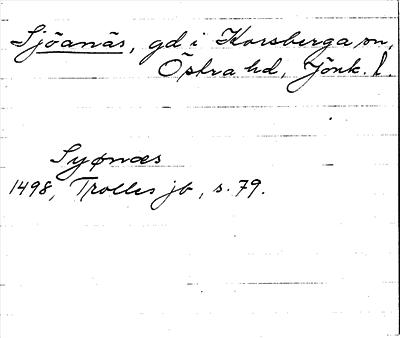 Sjöanäs, gd i Korsberga sn,
Östra hd, Jönk. l.
Syønæs
1498, Trolles jb, s. 79.